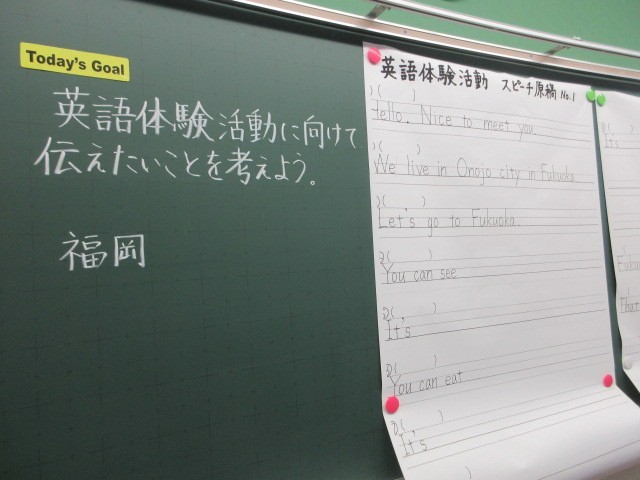 Today's Goal
英語体験活動に向けて
伝えたいことを考えよう。
福岡
英語体験活動 スピーチ原稿 No.1
( )
Hello. Nice to meet you.
( )
We live in Onojo city in Fukuoka
( )
Let's go to Fukuoka.
( )
You can see
( )
It's
( )
You can eat
( )
It's
)
It's
Fuku
that